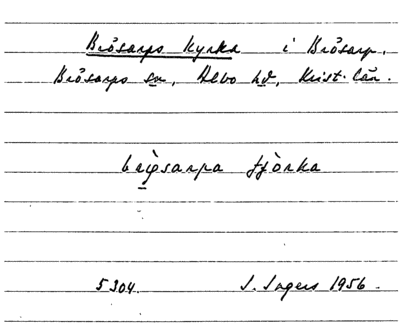 Brösarps kyrka i Brösarp,
Brösarps sn, Albo hd, Krist. län.
tjòrka
5304. I. Ingers 1956.